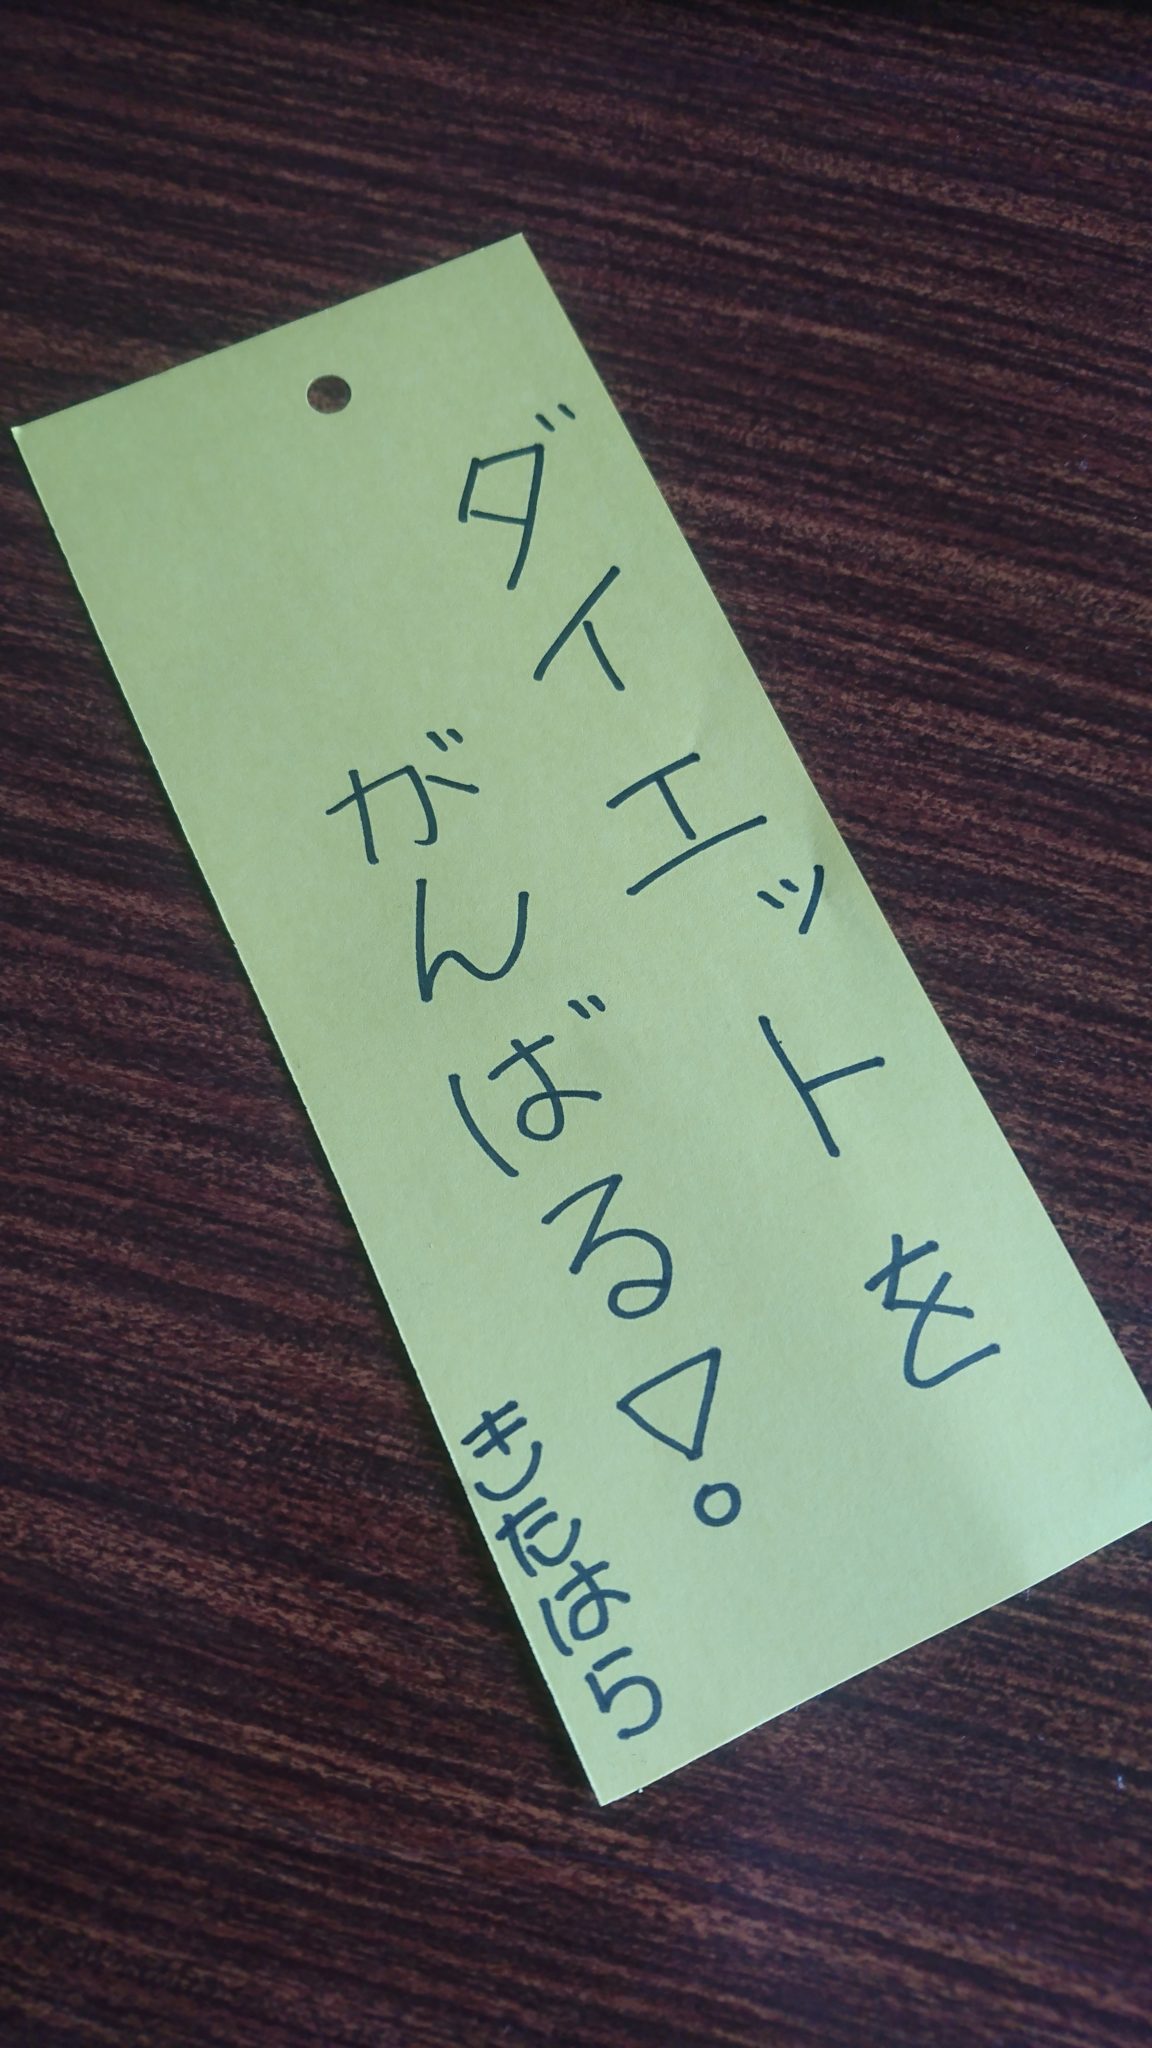 ダイエットを
がんばる!。
きたはら